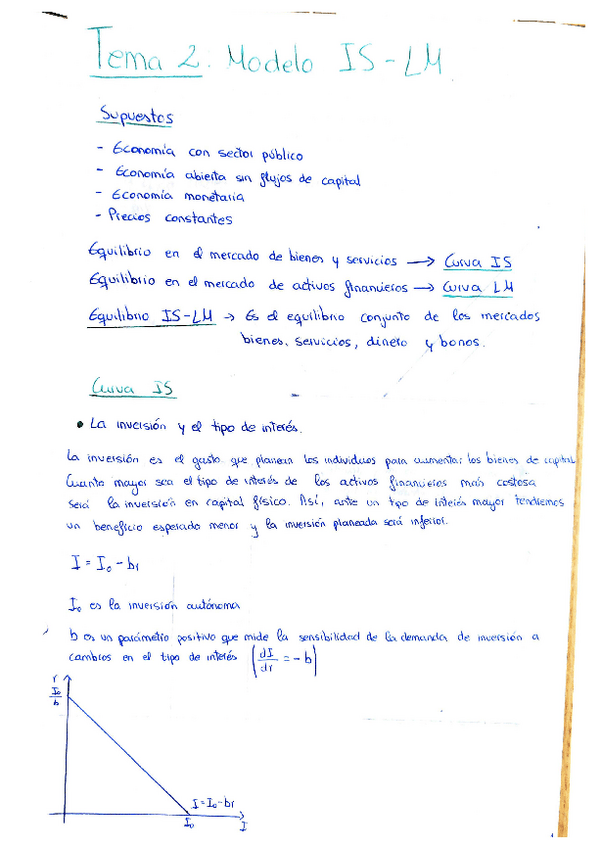 Tema 2: Modelo IS-LM
Supuestos
- Economía con sector público
- Economía abierta sin flujos de capital
- Economía monetaria
- Precios constantes
Equilibrio en el mercado de bienes y servicios → Curva IS
Equilibrio en el mercado de activos financieros → Curva LM
Equilibrio IS-LM → Es el equilibrio conjunto de los mercados
bienes, servicios, dinero y bonos.
Curva IS
• La inversión y el tipo de interés.
La inversión es el gasto que planean los individuos para aumentar los bienes de capital
Cuanto mayor sea el tipo de interés de los activos financieros más costosa
será la inversión en capital físico. Así, ante un tipo de interés mayor tendremos
un beneficio esperado menor y la inversión planeada será inferior.
I = I₀ - br
I₀ es la inversión autónoma
b es un parámetro positivo que mide la sensibilidad de la demanda de inversión a
cambios en el tipo de interés (dI/dr = -b)
r
I₀/b
I = I₀ - br
I₀
I